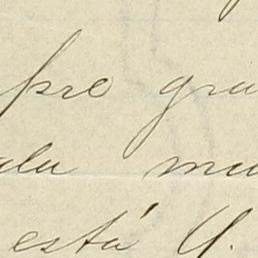 pre gra
ala mu
está V.